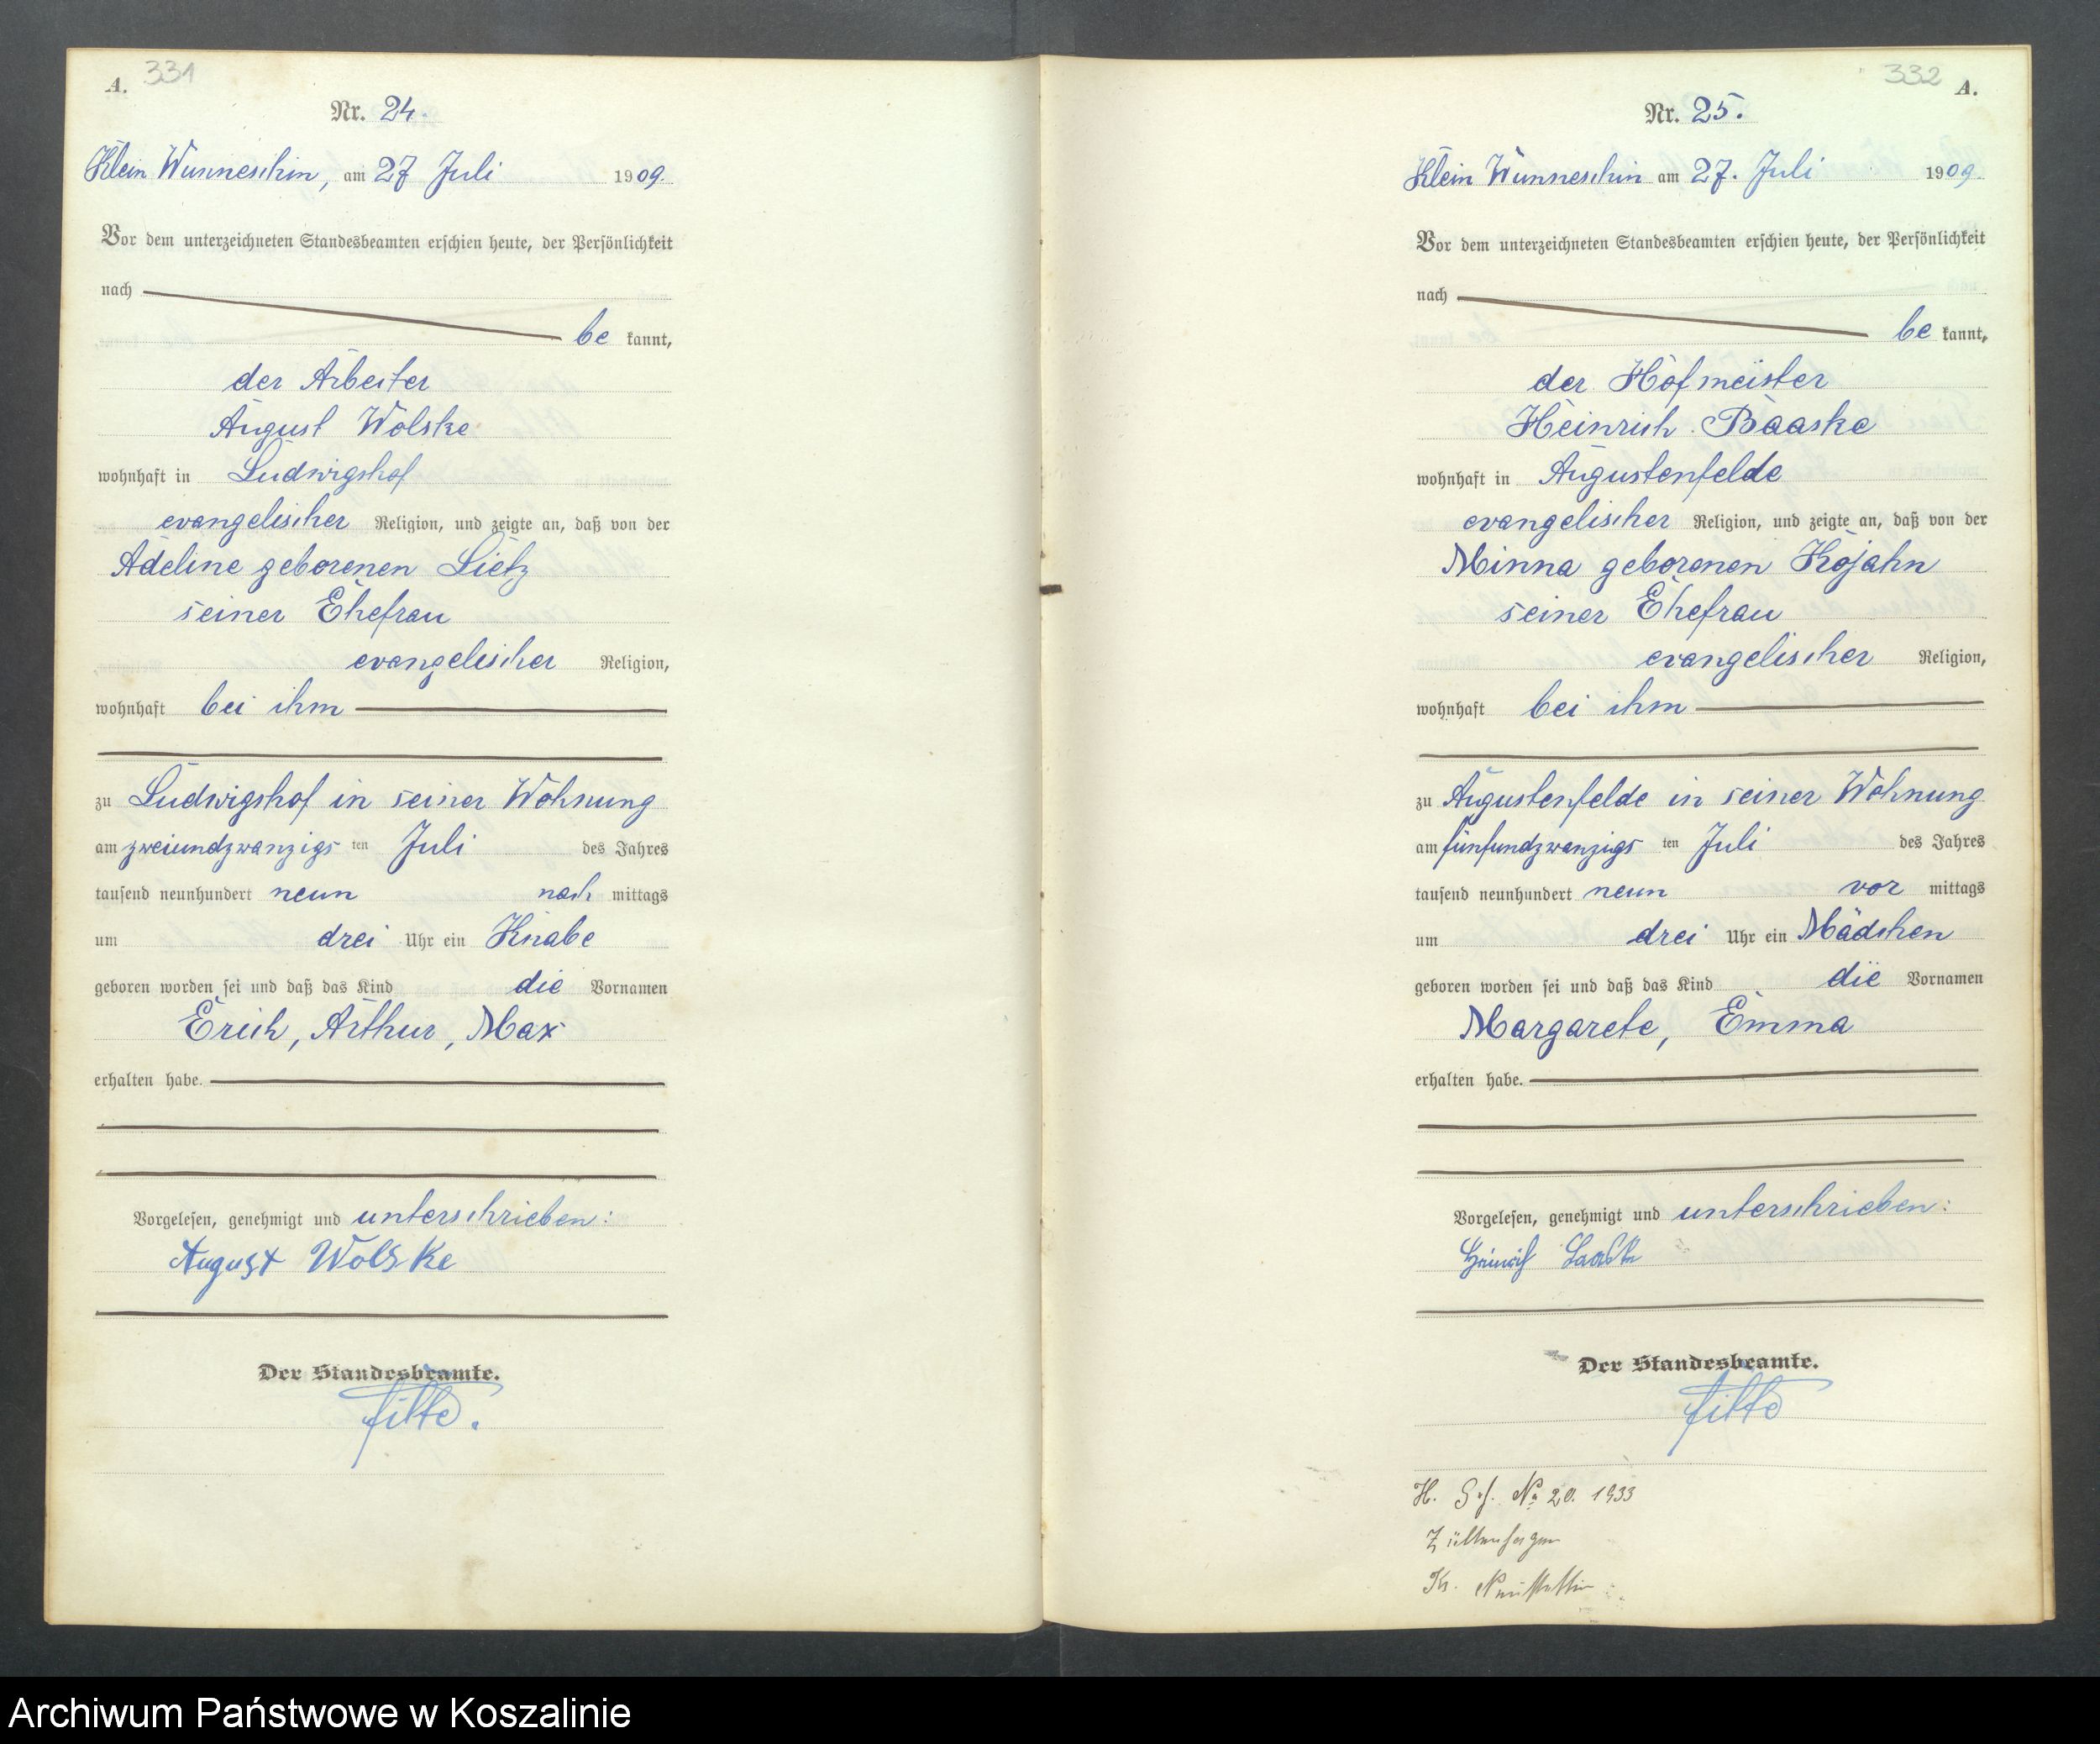 A. 331
Nr. 24.
Klein Wunneschin, am 27 Juli 1909.
Vor dem unterzeichneten Standesbeamten erschien heute, der Persönlichkeit
nach
be kannt,
der Arbeiter
August Wolske
wohnhaft in Ludwigshof
evangelischer Religion, und zeigte an, daß von der
Adeline geborenen Lietz
seiner Ehefrau
evangelischer Religion,
wohnhaft bei ihm
zu Ludwigshof in seiner Wohnung
am zweiundzwanzigs ten Juli des Jahres
tausend neunhundert neun nach mittags
um drei Uhr ein Knabe
geboren worden sei und daß das Kind die Vornamen
Erich, Arthur, Max
erhalten habe.
Vorgelesen, genehmigt und unterschrieben:
August Wolske
Der Standesbeamte.
332 A.
Nr. 25.
Klein Wunneschin am 27. Juli 1909.
Vor dem unterzeichneten Standesbeamten erschien heute, der Persönlichkeit
nach
be kannt,
der Hofmeister
Heinrich Baaske
wohnhaft in Augustenfelde
evangelischer Religion, und zeigte an, daß von der
Minna geborenen Kojahn
seiner Ehefrau
evangelischer Religion,
wohnhaft bei ihm
zu Augustenfelde in seiner Wohnung
am fünfundzwanzigs ten Juli des Jahres
tausend neunhundert neun vor mittags
um drei Uhr ein Mädchen
geboren worden sei und daß das Kind die Vornamen
Margarete, Emma
erhalten habe.
Vorgelesen, genehmigt und unterschrieben:
Heinrich Baaske
Der Standesbeamte.
H. No 20. 1933
Züllenhagen
Kr. Neustettin
Archiwum Państwowe w Koszalinie